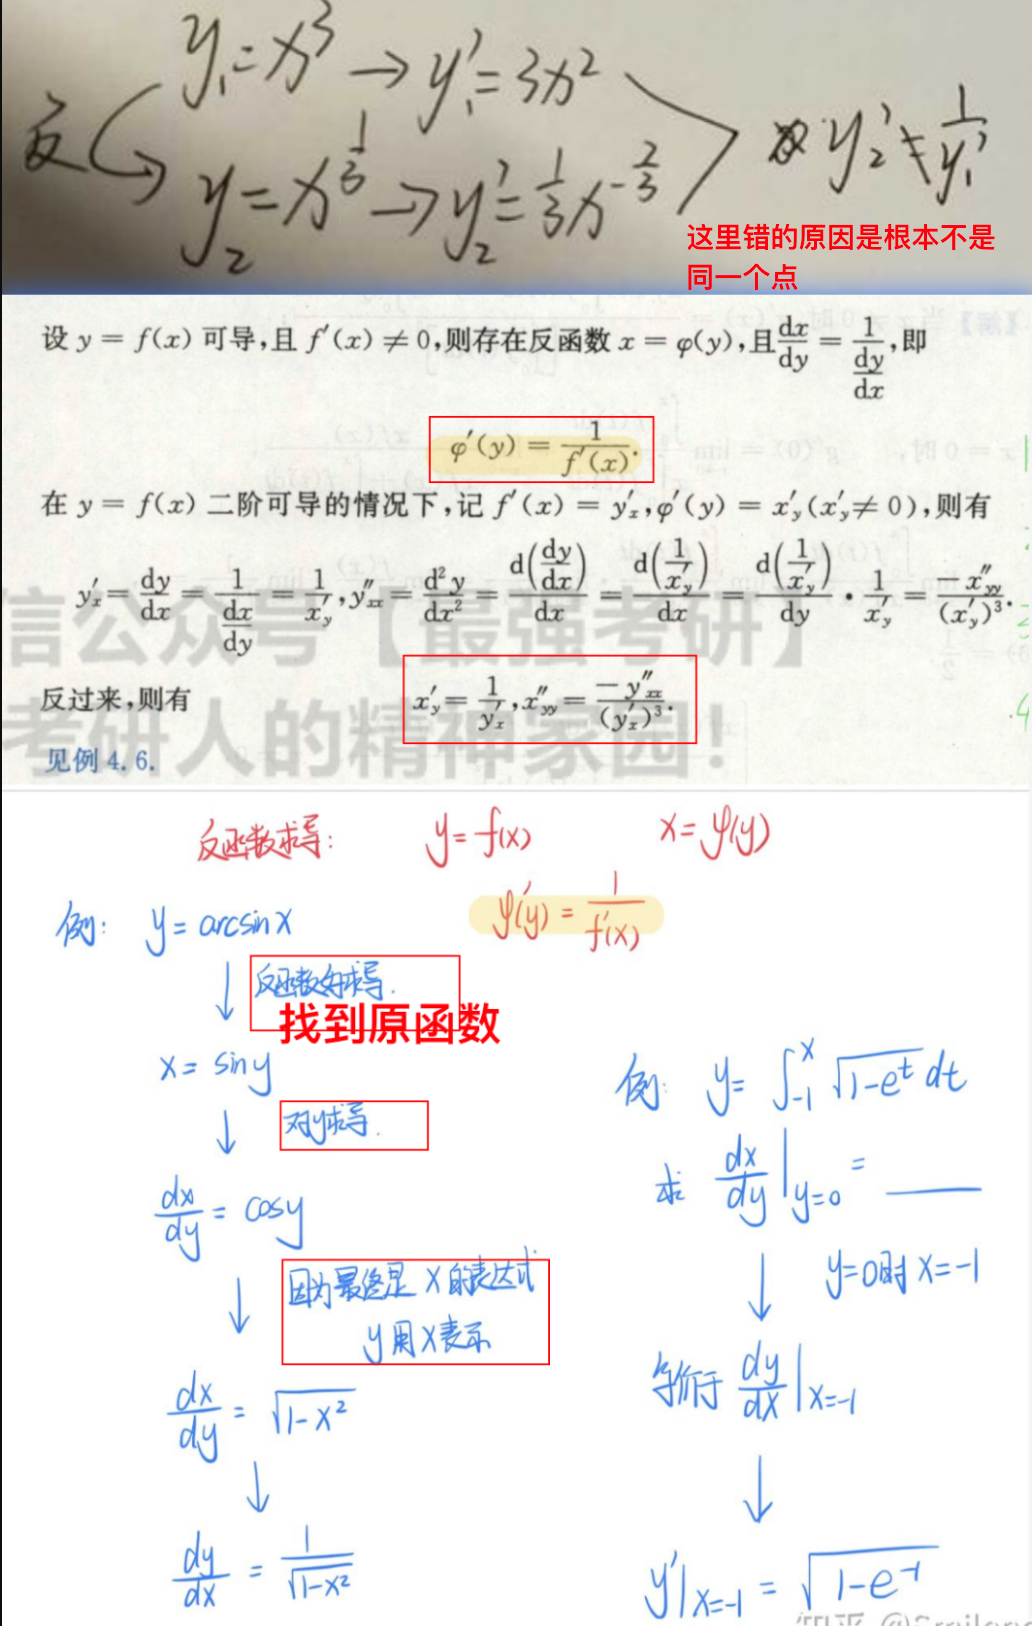 y₁=x³ → y₁'=3x²
反
y₂=x^(1/3) → y₂'=1/3 x^(-2/3)
y₂' ≠ 1/y₁'
这里错的原因是根本不是
同一个点
设 y = f(x) 可导,且 f'(x) ≠ 0,则存在反函数 x = φ(y),且 dx/dy = 1/(dy/dx),即
φ'(y) = 1/f'(x).
在 y = f(x) 二阶可导的情况下,记 f'(x) = y'ₓ,φ'(y) = x'_y(x'_y ≠ 0),则有
y'ₓ = dy/dx = 1/(dx/dy) = 1/x'_y, y''ₓₓ = d²y/dx² = d(dy/dx)/dx = d(1/x'_y)/dx = d(1/x'_y)/dy · 1/x'_y = -x''_yy/(x'_y)³.
反过来,则有
x'_y = 1/y'ₓ, x''_yy = -y''ₓₓ/(y'ₓ)³.
见例 4.6.
信公众号【最强考研】
考研人的精神家园!
反函数求导: y=f(x) x=φ(y)
φ'(y) = 1/f'(x)
例: y= arcsinx
↓ 反函数好求导.
找到原函数
x= siny
↓ 对y求导.
dx/dy = cosy
↓ 因为最终是 x 的表达式
y 用 x 表示
dx/dy = √(1-x²)
↓
dy/dx = 1/√(1-x²)
例: y= ∫₋₁ˣ √(1-eᵗ) dt
求 dx/dy |y=0 = ____
↓ y=0时 x=-1
等价于 dy/dx |x=-1
↓
y'|x=-1 = √(1-e⁻¹)